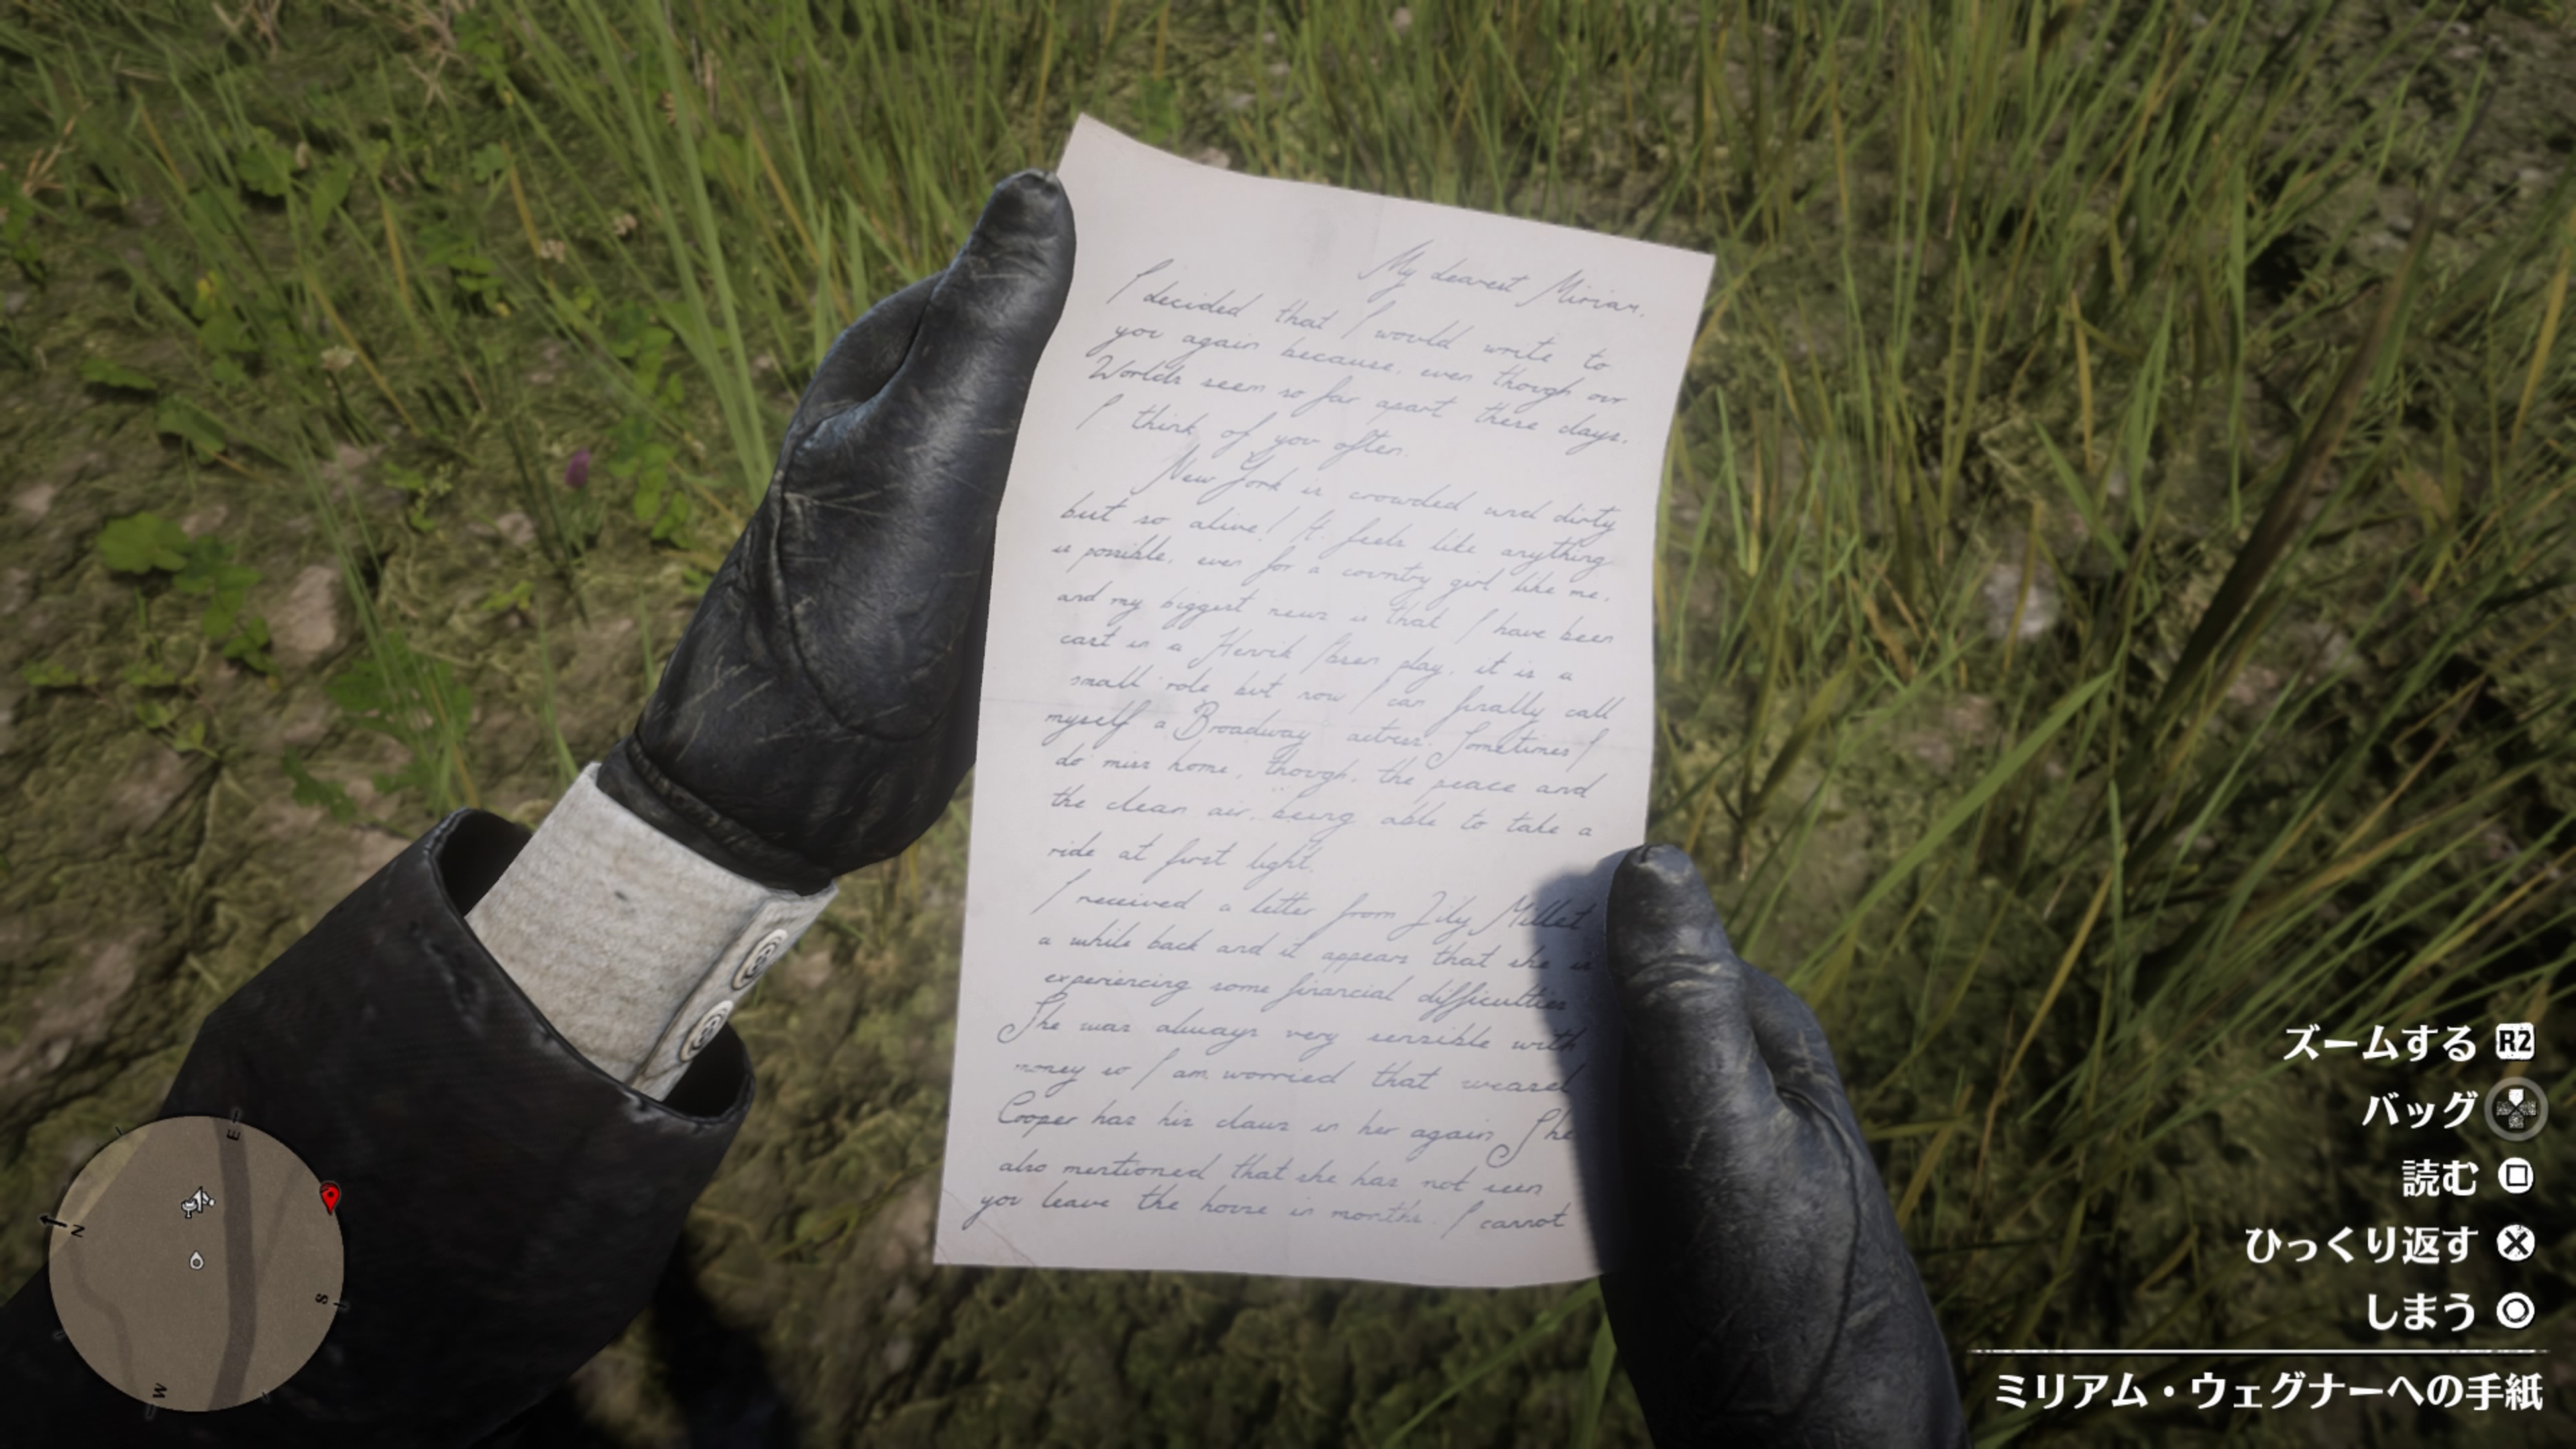 My dearest Miriam,
I decided that I would write to
you again because, even though our
Worlds seem so far apart these days,
I think of you often.
New York is crowded and dirty
but so alive! It feels like anything
is possible, even for a country girl like me,
and my biggest news is that I have been
cast in a Henrik Ibsen play, it is a
small role but now I can finally call
myself a Broadway actress. Sometimes I
do miss home, though, the peace and
the clean air, being able to take a
ride at first light.
I received a letter from Lily Millet
a while back and it appears that she is
experiencing some financial difficulties
She was always very sensible with
money so I am worried that weasel
Cooper has his claws in her again. She
also mentioned that she has not seen
you leave the house in months. I cannot
ズームする R2
バッグ
読む
ひっくり返す
しまう
ミリアム・ウェグナーへの手紙
N
E
S
W